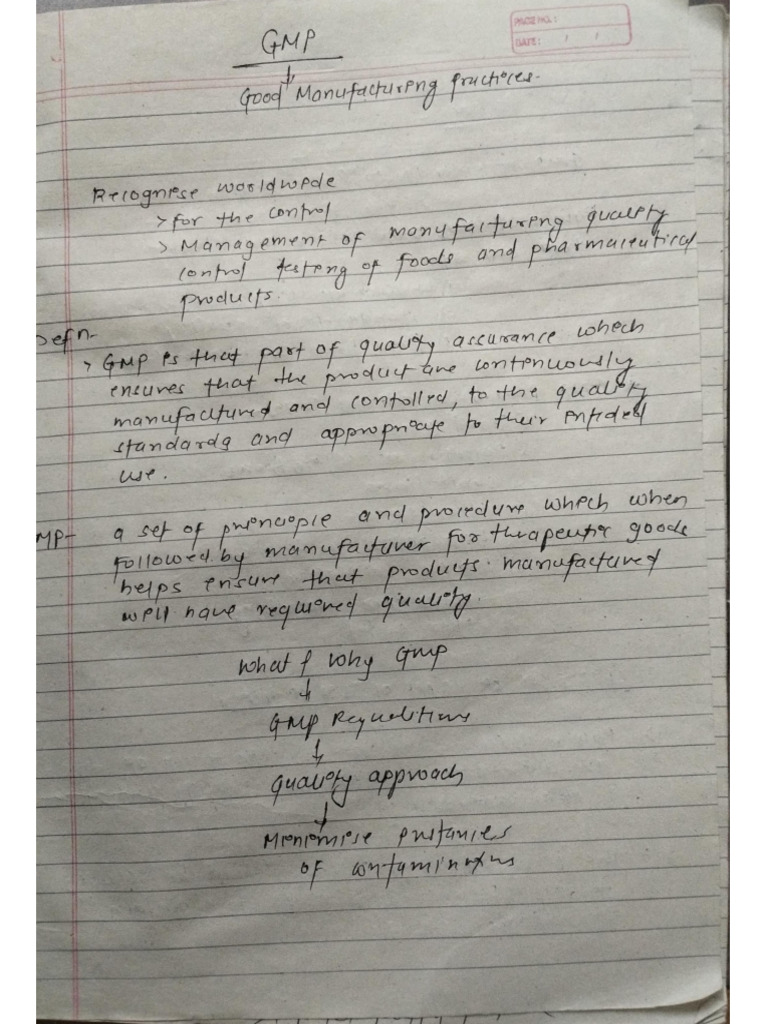 PAGE NO.:
DATE: / /
GMP
Good Manufacturing Practices.
Recognise worldwide
> for the control
> Management of manufacturing quality
control testing of foods and pharmaceutical
products.
Defn-
> GMP is that part of quality assurance which
ensures that the product are continuously
manufactured and contolled, to the quality
standards and appropriate to their intided
use.
MP- a set of principle and procedure which when
followed by manufacturer for therapeutic goods
helps ensure that products manufactured
will have required quality.
What & Why GMP
GMP
Quality approach
Minimise instancies
of